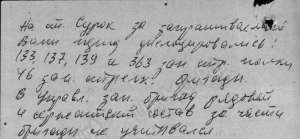 На ст. Сурок за запрашиваемый
Вами период дислоцировались:
133, 137, 139 и 363 зап. стр. полки,
46 зап. стрелк. бригады.
В управл. зап. бригад рядовой
и сержантский состав за части
бригады не учитывался.